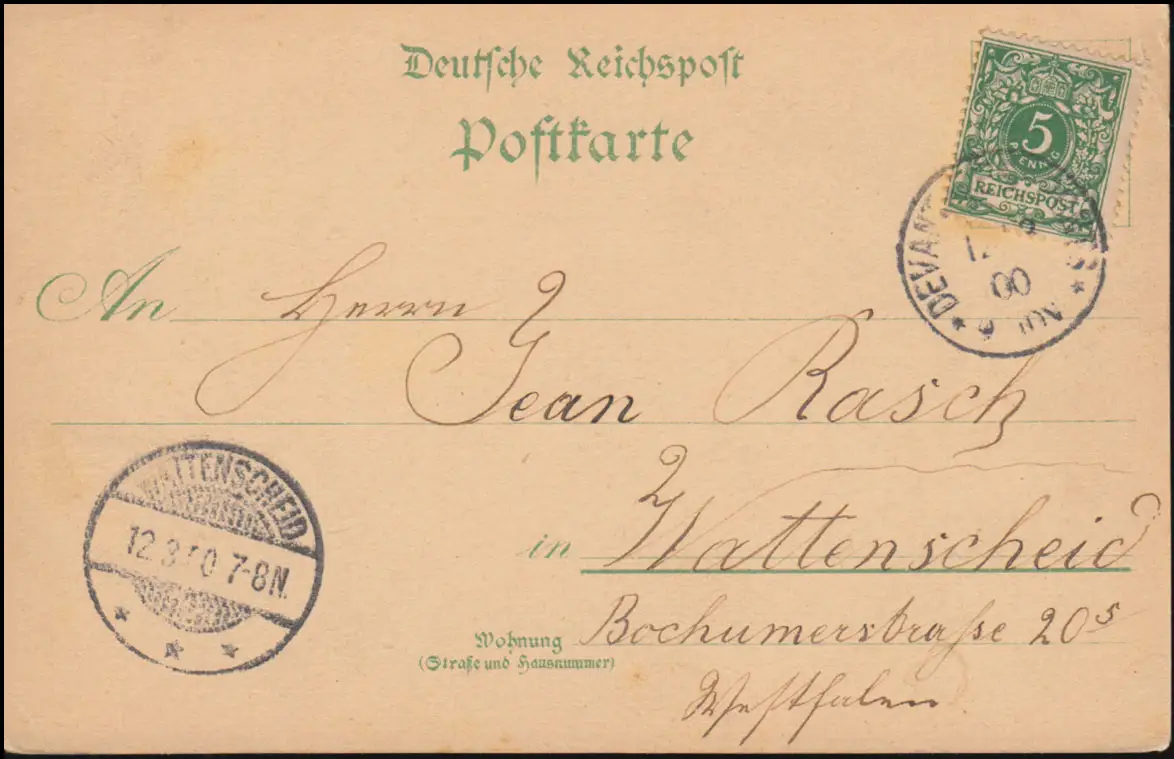 Deutsche Reichspost
Postkarte
5
PFENNIG
REICHSPOST
00
An Herrn
Jean Rasch
WATTENSCHEID
12.3. 0 7-8N.
in Wattenscheid
Wohnung
(Straße und Hausnummer)
Bochumerstraße 20⁵
Westfalen